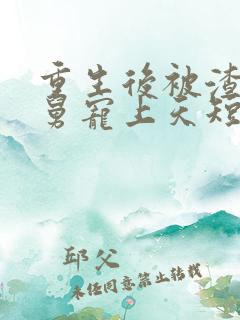 重生後被渣
舅寵上天短
邱父
未經同意禁止轉載